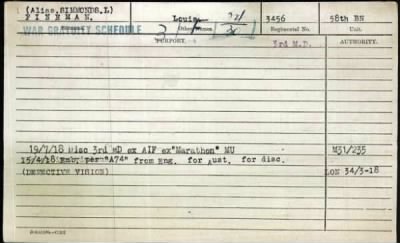 (Alias. SIMMONDS. L)
FINEMAN. Louis 3456 58th BN
WAR GRATUITY SCHEDULE Regimental No. Unit.
PURPORT. 3rd M.D. AUTHORITY.
19/7/18 Disc 3rd MD ex AIF ex"Marathon" MU M31/235
15/4/18 Emb. per "A74" from Eng. for Aust. for disc.
(DEFECTIVE VISION) LON 34/3-18